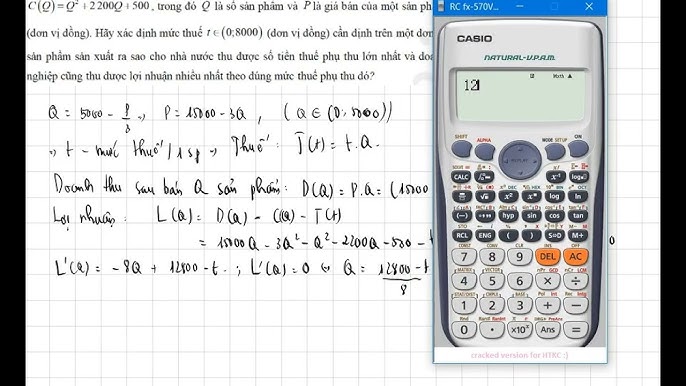 C(Q)=Q²+2200Q+500, trong đó Q là số sản phẩm và P là giá bán của một sản ph
(đơn vị đồng). Hãy xác định mức thuế t∈(0;8000) (đơn vị đồng) cần định trên một đơn
sản phẩm sản xuất ra sao cho nhà nước thu được số tiền thuế phụ thu lớn nhất và doa
nghiệp cũng thu được lợi nhuận nhiều nhất theo đúng mức thuế phụ thu đó?
Q = 5000 - P/3 → P = 15000 - 3Q, (Q ∈ (0; 5000))
→ t - mức thuế / 1 sp → Thuế: T(t) = t.Q.
Doanh thu sau bán Q sản phẩm: D(Q) = P.Q = (15000
Lợi nhuận: L(Q) = D(Q) - C(Q) - T(t)
= 15000Q - 3Q² - Q² - 2200Q - 500 - t
L'(Q) = -8Q + 12800 - t.; L'(Q) = 0 ⇔ Q = (12800 - t)/8
RC fx-570V...
CASIO
NATURAL-V.P.A.M.
Math
12
SHIFT ALPHA REPLAY MODE SETUP ON
CALC x⁻¹ log
x² log ln
(-) hyp sin cos tan
RCL ENG ( ) S⇔D M+
7 8 9 DEL AC
4 5 6 × ÷
1 2 3 + -
0 . ×10ˣ Ans =
cracked version for HTRC :)